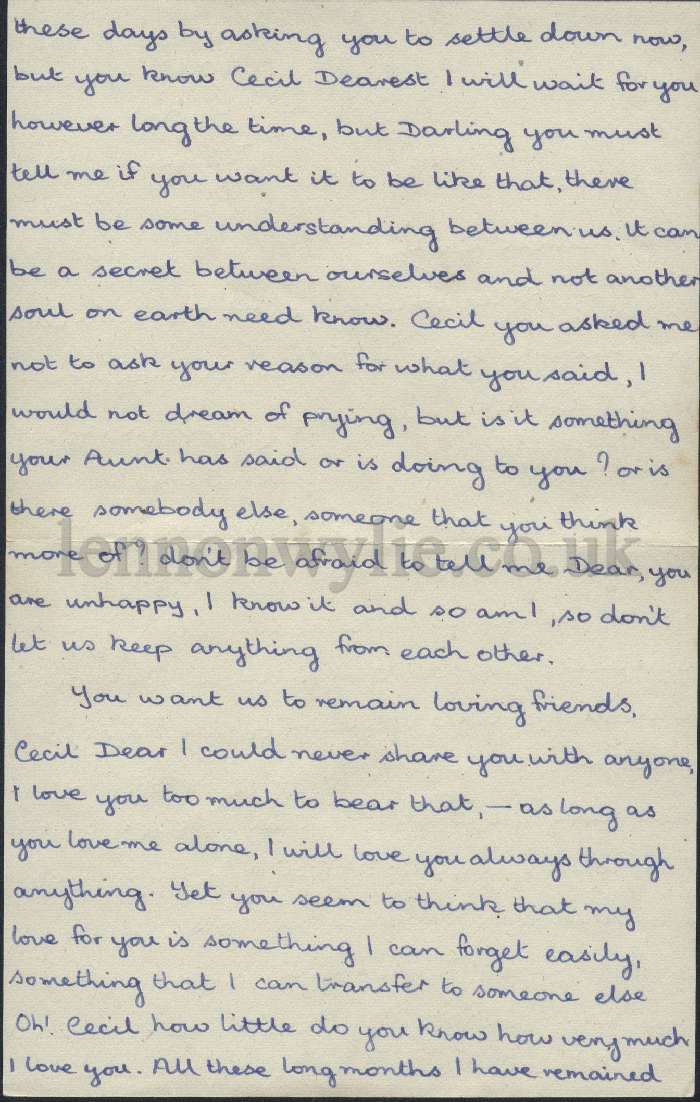 these days by asking you to settle down now,
but you know Cecil Dearest I will wait for you
however long the time, but Darling you must
tell me if you want it to be like that, there
must be some understanding between us. It can
be a secret between ourselves and not another
soul on earth need know. Cecil you asked me
not to ask your reason for what you said, I
would not dream of prying, but is it something
your Aunt has said or is doing to you? or is
there somebody else, someone that you think
lennonwylie.co.uk
more of? don't be afraid to tell me Dear, you
are unhappy, I know it and so am I, so don't
let us keep anything from each other.
You want us to remain loving friends,
Cecil Dear I could never share you with anyone,
I love you too much to bear that, — as long as
you love me alone, I will love you always through
anything. Yet you seem to think that my
love for you is something I can forget easily,
something that I can transfer to someone else
Oh! Cecil how little do you know how very much
I love you. All these long months I have remained